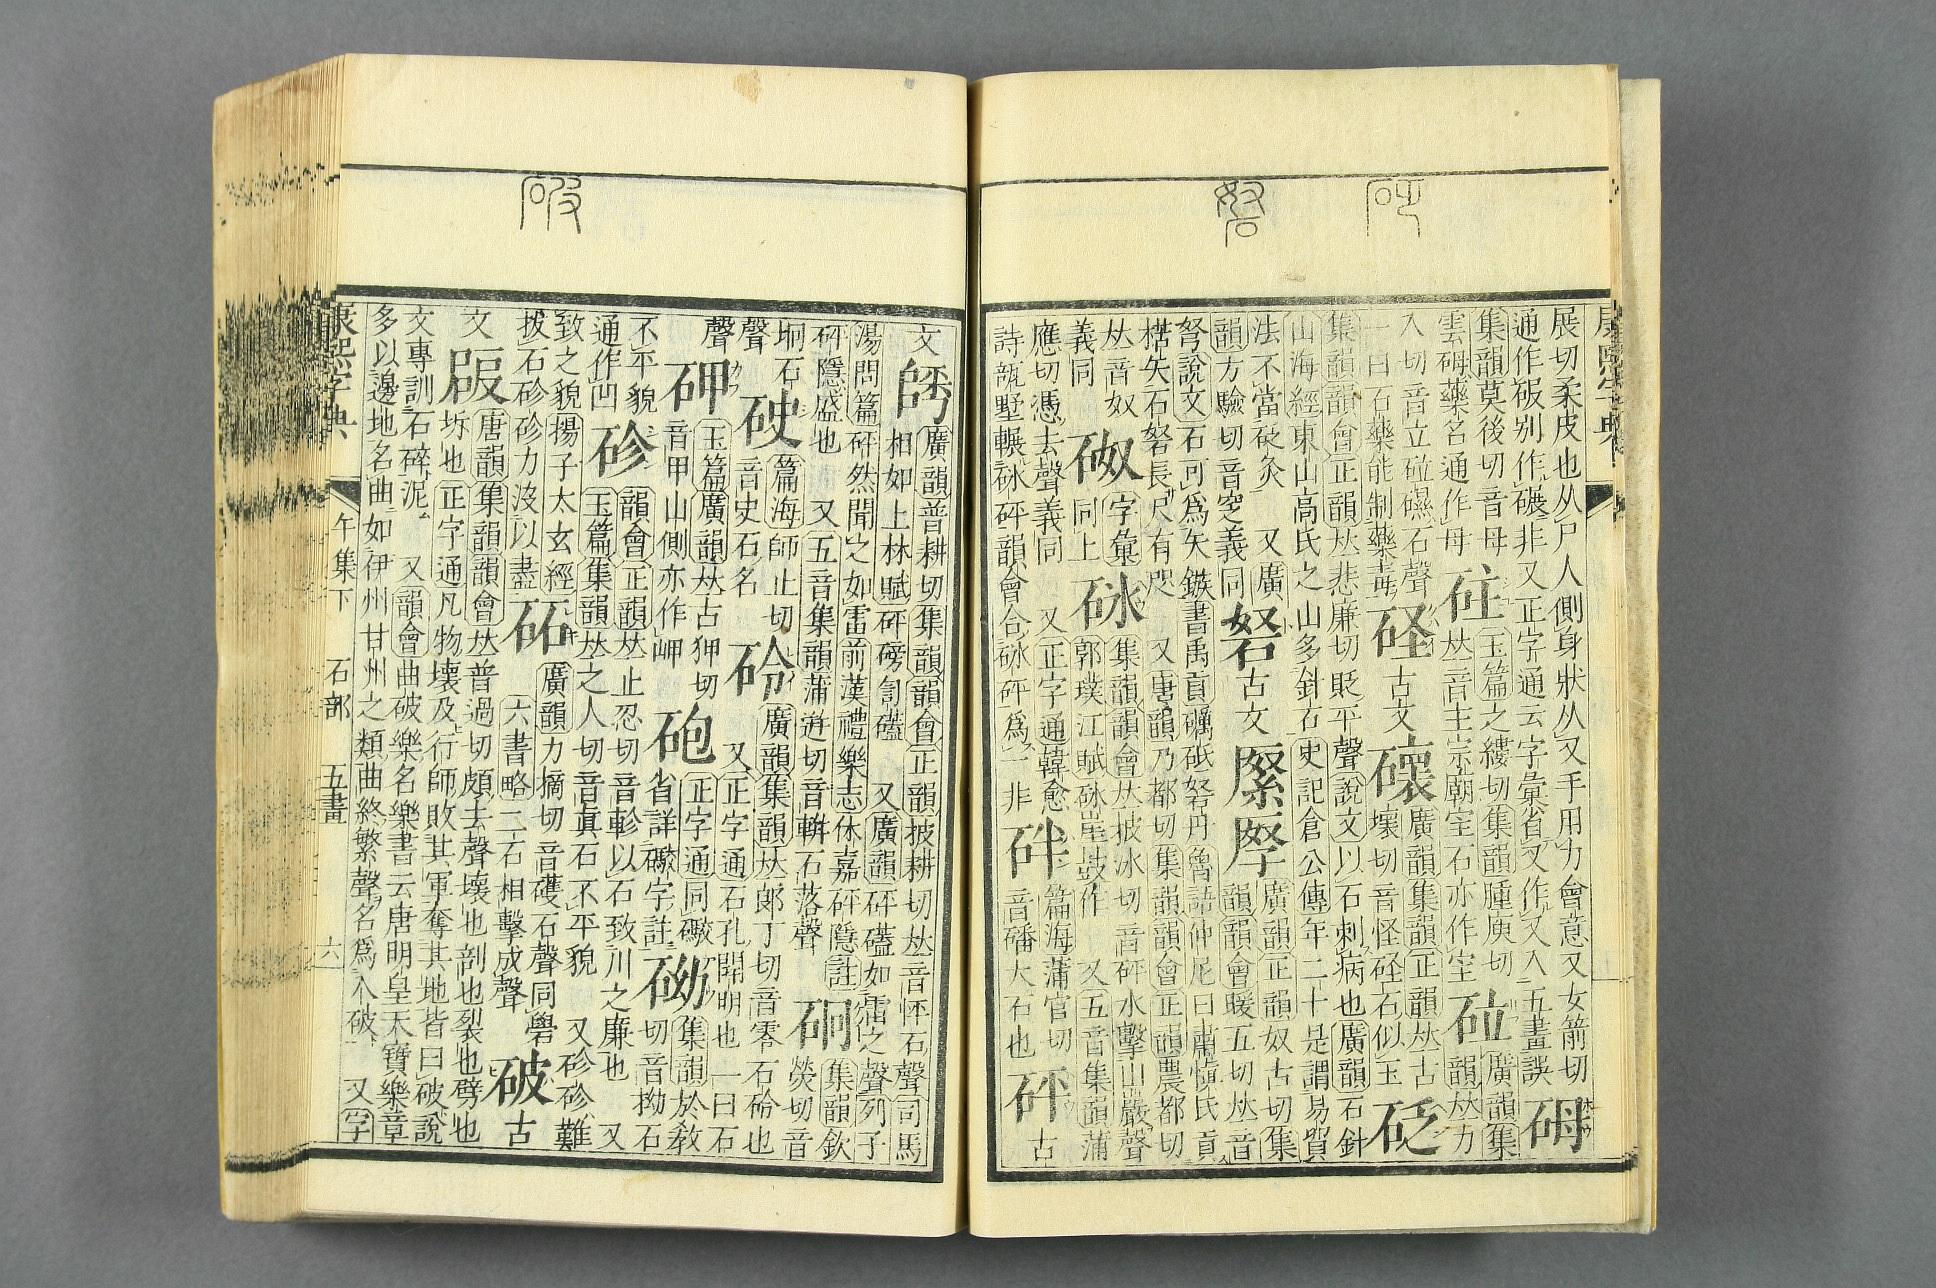 砰
砮
展切柔皮也从尸人側身狀从又手用力會意又女箭切
通作㞋別作碾非又正字通云字彙省又作又入五畫誤
砪
集韻莫後切音母
雲砪藥名通作母
砫
玉篇之縷切集韻腫庾切
𠀤音主宗廟宔石亦作宔
砬
廣韻集
韻𠀤力
入切音立石聲
一曰石藥能制藥毒
硁
古文
廣韻集韻正韻𠀤古
壞切音怪硁石似玉
砭
集韻韻會正韻𠀤悲廉切貶平聲說文以石刺病也廣韻石針
山海經東山高氏之山多針石史記倉公傳年二十是謂易貿
法不當砭灸 又廣
韻方驗切音窆義同
砮
古文
廣韻正韻奴古切集
韻韻會暖五切𠀤音
弩說文石可爲矢鏃書禹貢礪砥砮丹魯語仲尼曰肅愼氏貢
楛矢石砮長尺有咫 又唐韻乃都切集韻韻會正韻農都切
𠀤音奴
義同
字彙
同上
砯
集韻韻會𠀤披冰切音砰水擊山巖聲
郭璞江賦砯崖鼓作 又五音集韻蒲
應切憑去聲義同 又正字通韓愈
詩瓿墅輾砯砰韻會合砯砰爲一非
篇海蒲官切
音磻大石也
砰
古
破
文
廣韻普耕切集韻韻會正韻披耕切𠀤音怦石聲司馬
相如上林賦砰磅訇礚 又廣韻砰礚如雷之聲列子
湯問篇砰然聞之如雷前漢禮樂志休嘉砰隱註
砰隱盛也 又五音集韻蒲迸切音軿石落聲
集韻欽
熒切音
坰石
聲
篇海師止切
音史石名
砱
廣韻集韻𠀤郎丁切音零石砱也
又正字通石孔開明也一曰石
聲
玉篇廣韻𠀤古狎切
音甲山側亦作岬
砲
正字通同礮
省詳礮字註
集韻於教
切音拗石
不平貌
通作凹
韻會正韻𠀤止忍切音軫以石致川之廉也 又
玉篇集韻𠀤之人切音眞石不平貌 又難
致之貌揚子太玄經
拔石力沒以盡
砳
廣韻力摘切音石聲同礐
六書略二石相擊成聲
破
古
文
唐韻集韻韻會𠀤普過切頗去聲壞也剖也裂也劈也
坼也正字通凡物壞及行師敗其軍奪其地皆曰破說
文專訓石碎泥 又韻會曲破樂名樂書云唐明皇天寶樂章
多以邊地名曲如伊州甘州之類曲終繁聲名爲入破 又字
康熙字典 午集下 石部 五畫 六